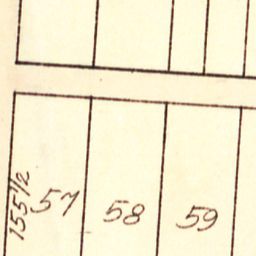 155 1/2
57
58
59